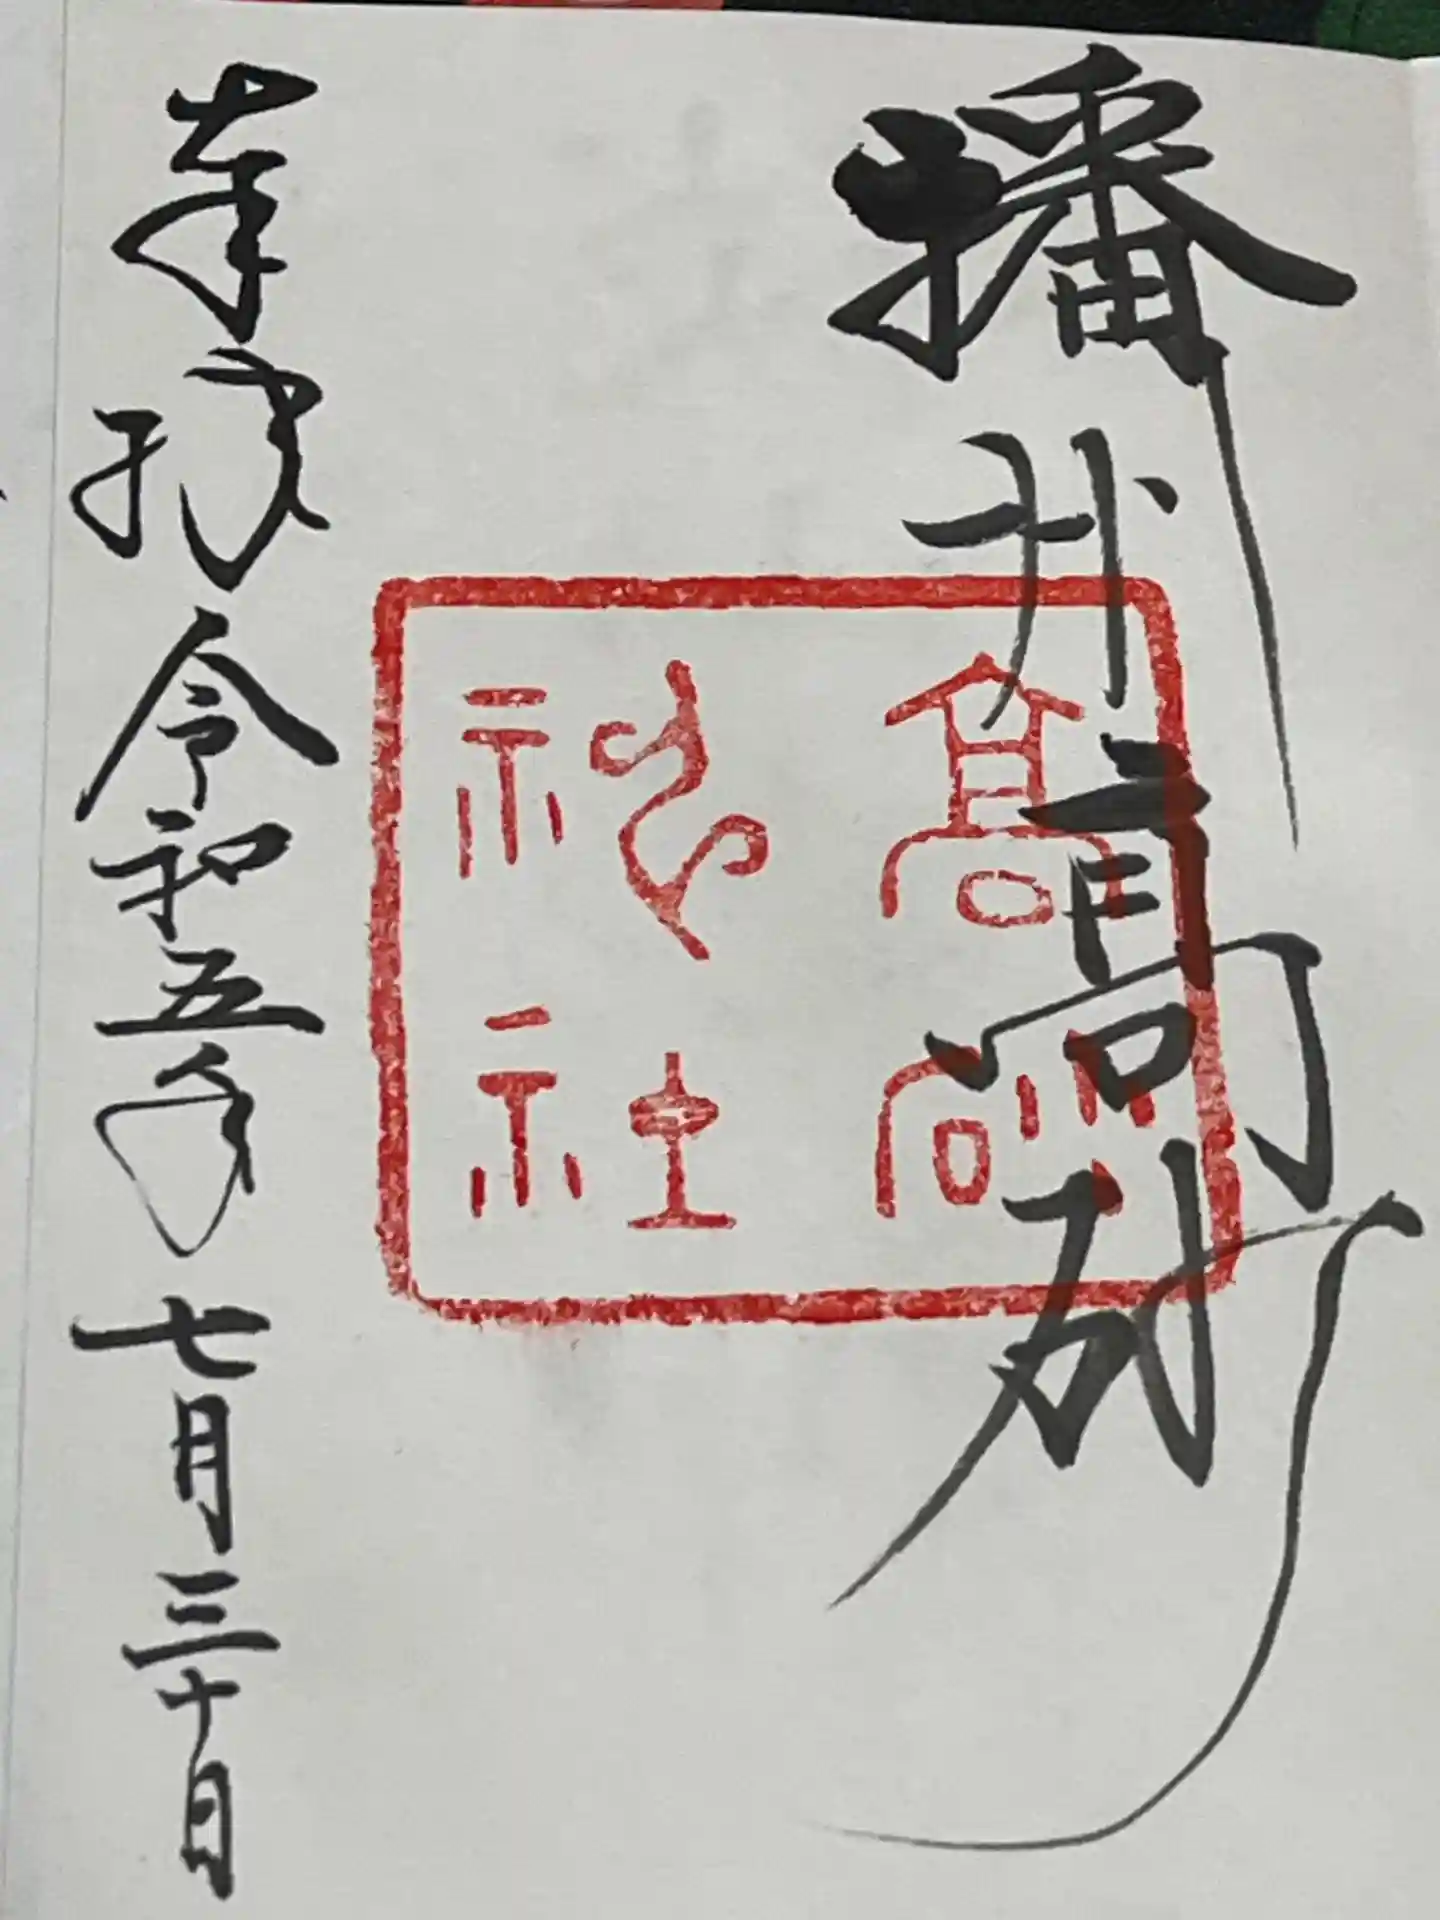 播州高砂
高砂
神社
奉拝 令和五年 七月三十日